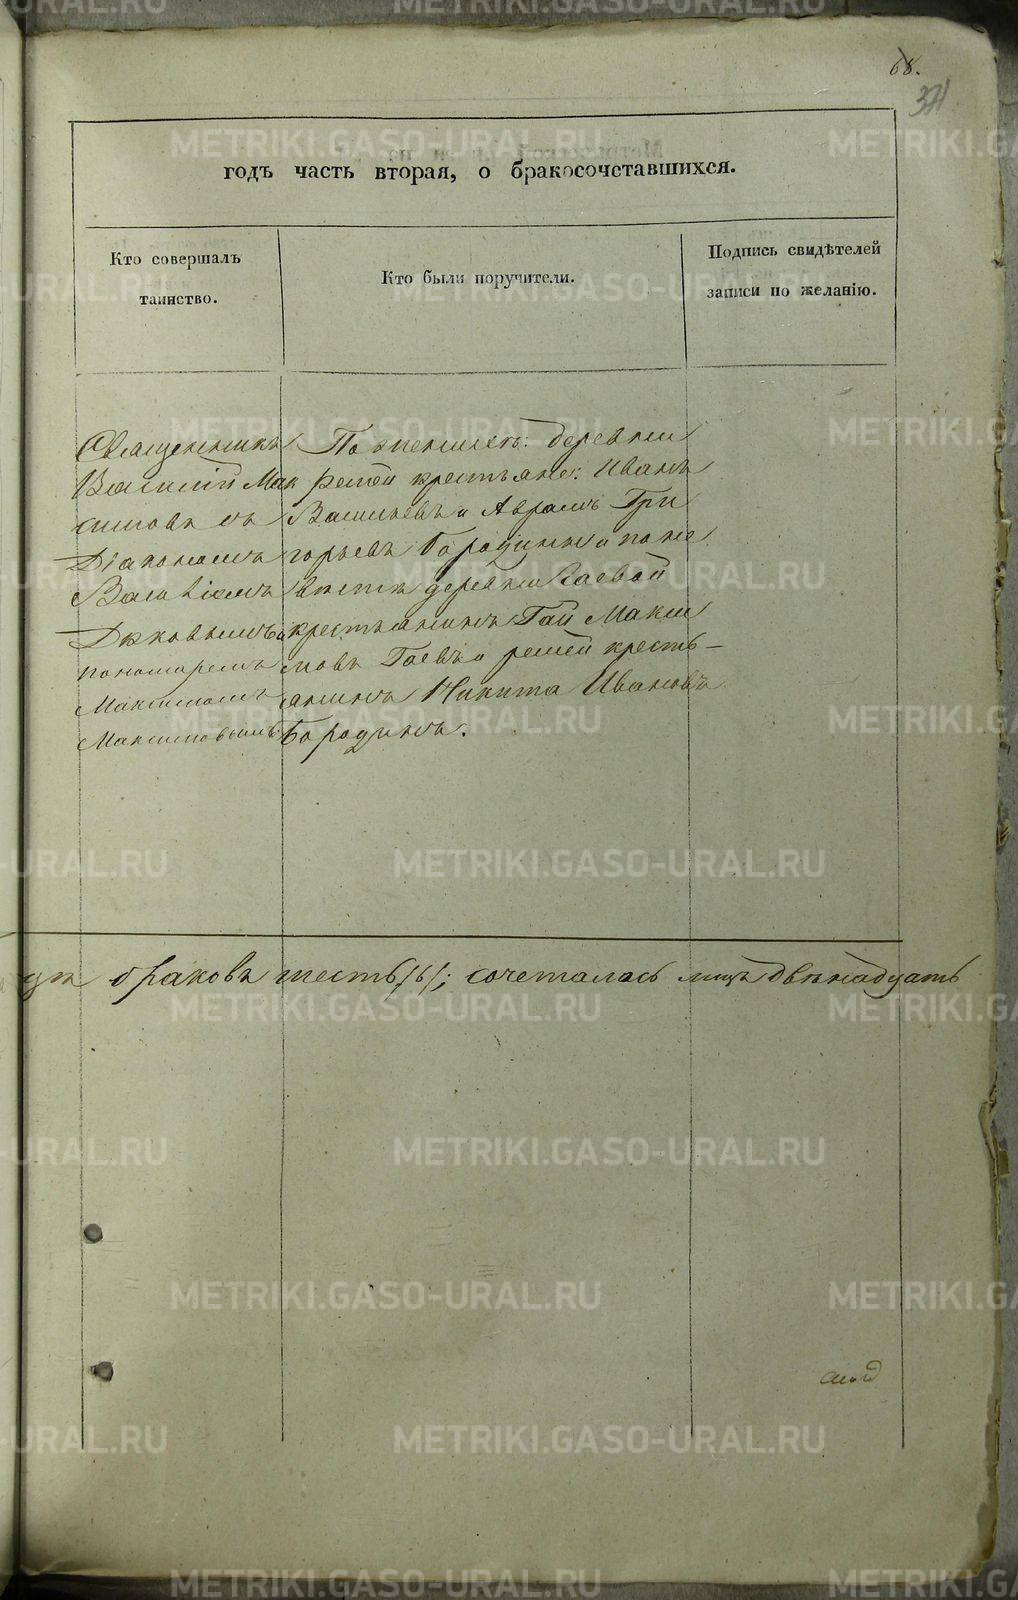 68.
371
годъ часть вторая, о бракосочетавшихся.
Кто совершалъ
таинство.
Кто были поручители.
Подпись свидѣтелей
записи по желанію.
Священникъ
Василий Мак
симовъ съ
Діакономъ
Василіемъ
Дьковымъ и
пономаремъ
Максимомъ
Максимовымъ
По женихѣ: деревни
Решеи крестьяне: Иванъ
Васильевъ и Аврамъ Гри
горьевъ Бородины и по не
вѣстѣ деревни Гаевой
крестьянинъ Гай Макси
мовъ Гаевъ и решеи кресть–
янинъ Никита Ивановъ
Бородинъ.
браковъ шесть /6/; сочеталась лицъ двѣнадцать
METRIKI.GASO-URAL.RU